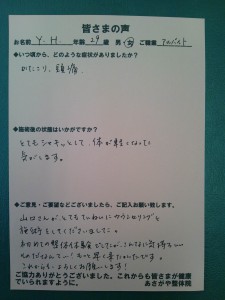 皆さまの声
お名前 Y. H. 年齢 29歳 男・女 ご職業 アルバイト
◆いつ頃から、どのような症状がありましたか?
肩こり、頭痛
◆施術後の状態はいかがですか?
とてもシャキッとして、体が軽くなった
気がします。
◆ご意見・ご要望などございましたら、ご記入お願い致します。
山口さんが、とてもていねいにカウンセリングと
施術をしてくださいました。
初めての整体体験でしたが、こんなに気持ちいい
ものだなんて…！もっと早く来たかったです。
これからもよろしくお願いします！
ご協力ありがとうございました。これからも皆さまが健康
でいられますように。 あさがや整体院